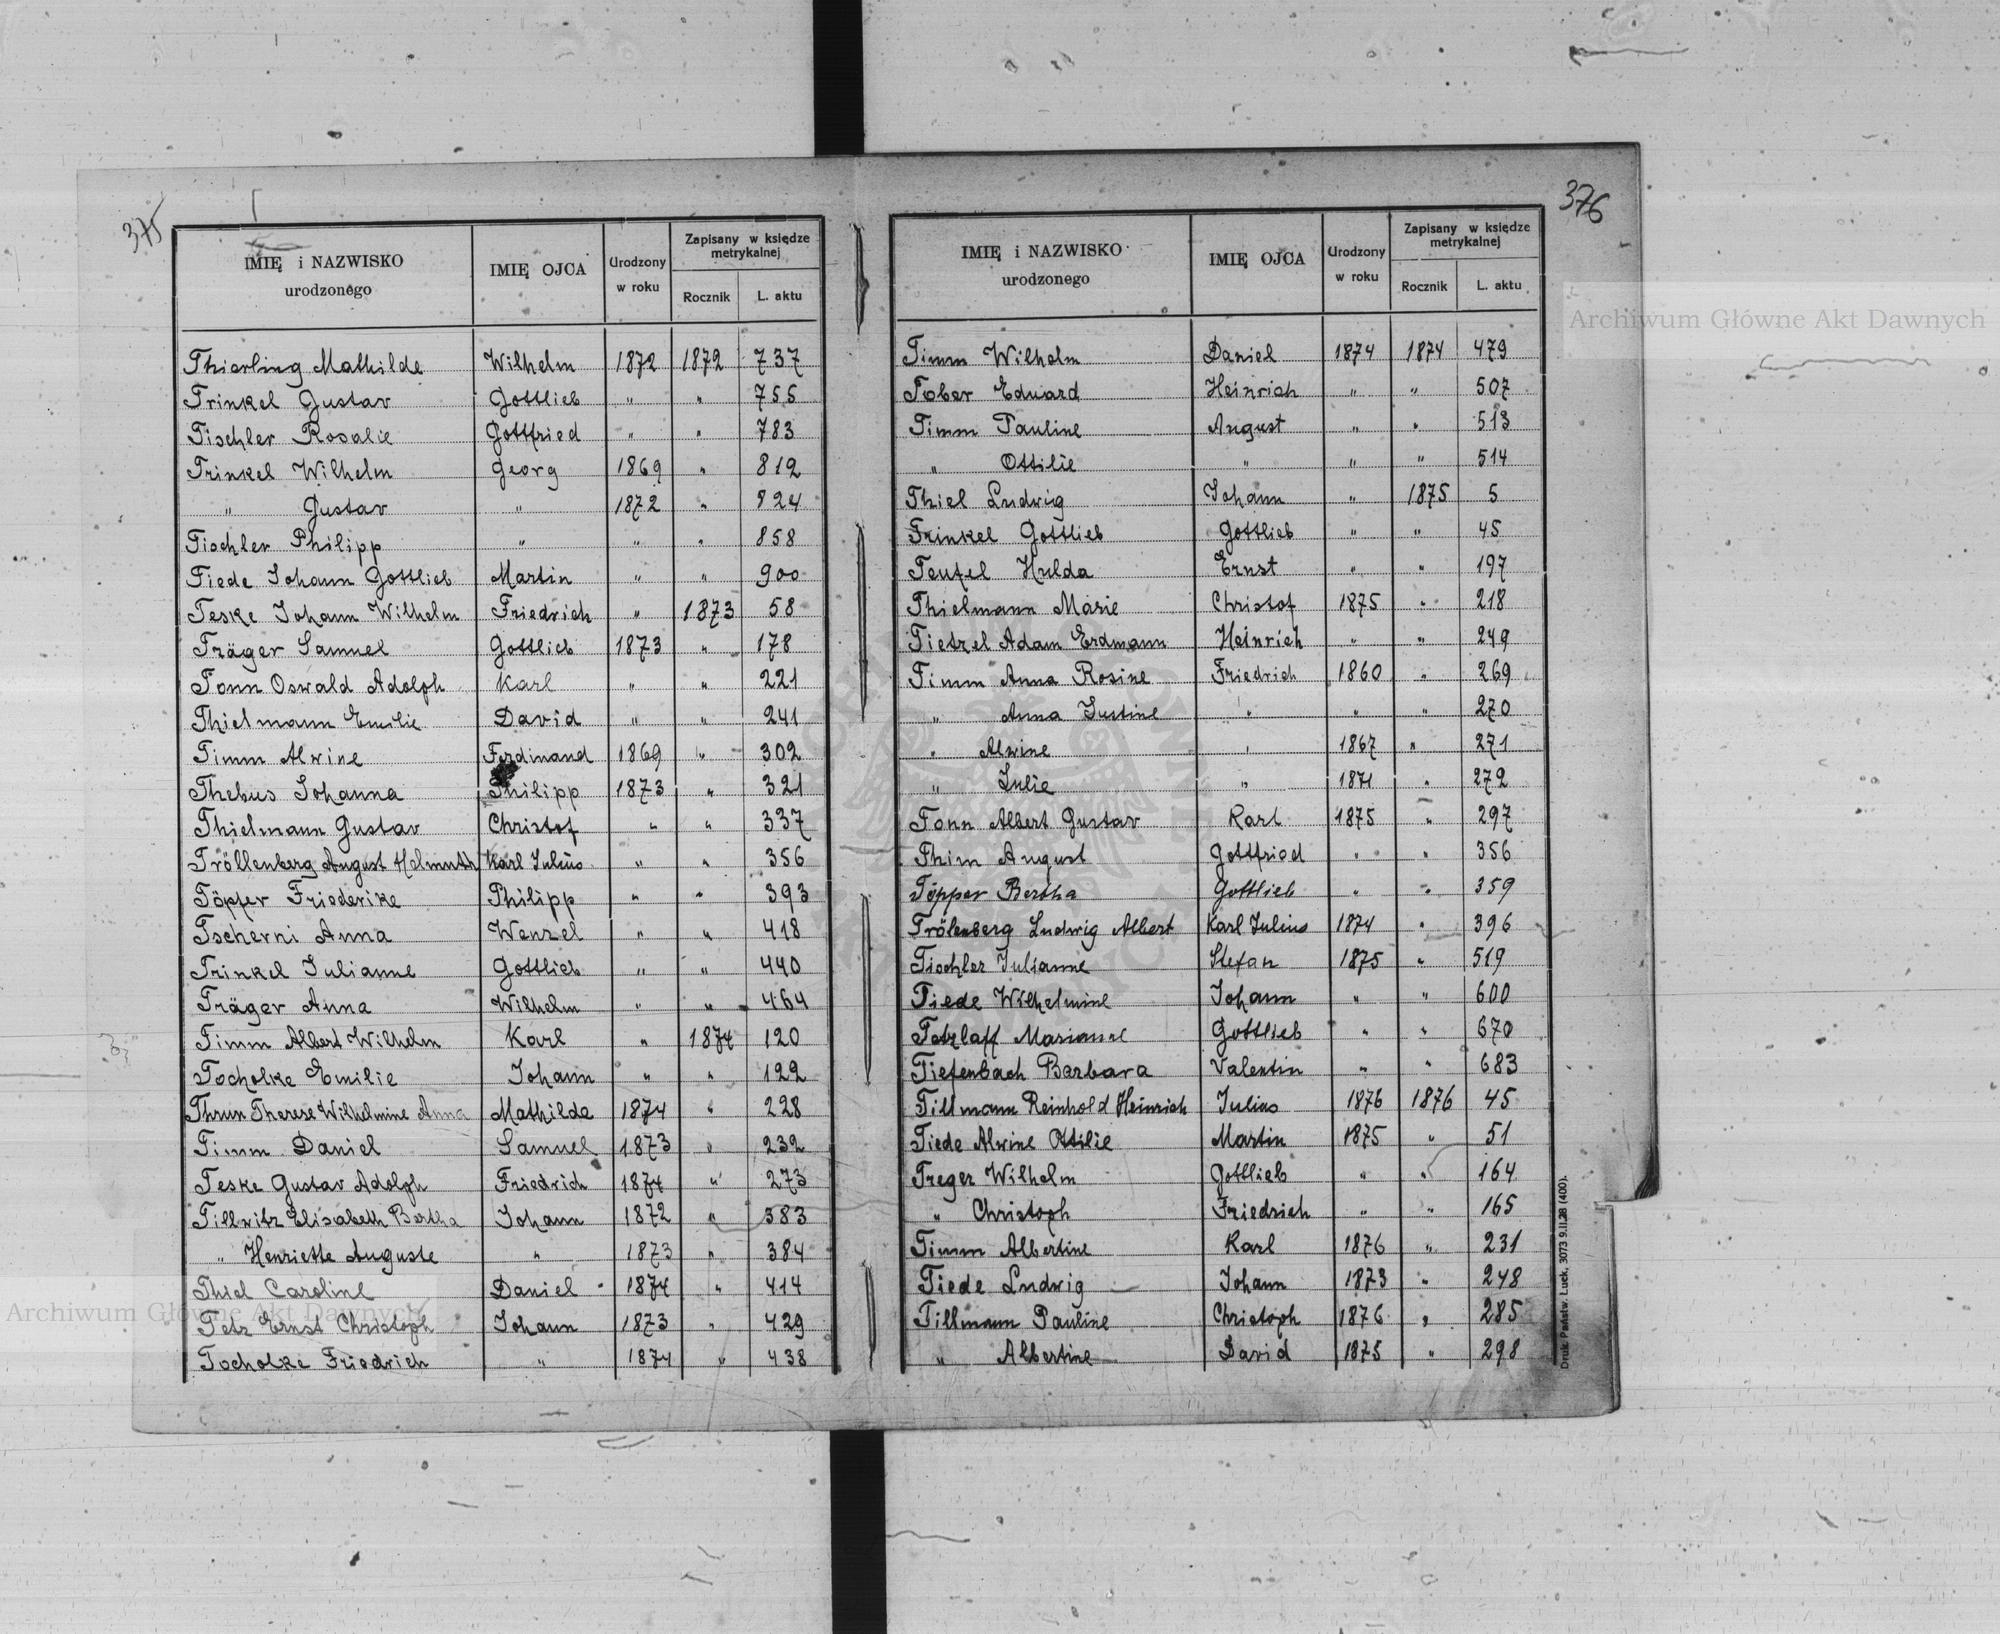 375
IMIĘ i NAZWISKO urodzonego | IMIĘ OJCA | Urodzony w roku | Zapisany w księdze metrykalnej
Rocznik | L. aktu
Thierling Mathilde | Wilhelm | 1872 | 1872 | 737
Trinkel Gustav | Gottlieb | " | " | 755
Tischler Rosalie | Gottfried | " | " | 783
Trinkel Wilhelm | Georg | 1869 | " | 812
" Gustav | " | 1872 | " | 824
Tischler Philipp | " | " | " | 858
Tiede Johann Gottlieb | Martin | " | " | 900
Teske Johann Wilhelm | Friedrich | " | 1873 | 58
Träger Samuel | Gottlieb | 1873 | " | 178
Tonn Oswald Adolph | Karl | " | " | 221
Thielmann Emilie | David | " | " | 241
Timm Alwine | Ferdinand | 1869 | " | 302
Thebus Johanna | Philipp | 1873 | " | 321
Thielmann Gustav | Christof | " | " | 337
Tröllenberg August Helmuth | Karl Julius | " | " | 356
Töpfer Friederike | Philipp | " | " | 393
Tscherni Anna | Wenzel | " | " | 418
Trinkel Julianne | Gottlieb | " | " | 440
Träger Anna | Wilhelm | " | " | 464
Timm Albert Wilhelm | Karl | " | 1874 | 120
Tocholke Emilie | Johann | " | " | 122
Thrun Therese Wilhelmine Anna | Mathilde | 1874 | " | 228
Timm Daniel | Samuel | 1873 | " | 232
Teske Gustav Adolph | Friedrich | 1874 | " | 273
Tillwitz Elisabeth Bertha | Johann | 1872 | " | 383
" Henriette Auguste | " | 1873 | " | 384
Thiel Caroline | Daniel | 1874 | " | 414
Tetz Ernst Christoph | Johann | 1873 | " | 429
Tocholke Friedrich | " | 1874 | " | 438
376
IMIĘ i NAZWISKO urodzonego | IMIĘ OJCA | Urodzony w roku | Zapisany w księdze metrykalnej
Rocznik | L. aktu
Timm Wilhelm | Daniel | 1874 | 1874 | 479
Tober Eduard | Heinrich | " | " | 507
Timm Pauline | August | " | " | 513
" Ottilie | " | " | " | 514
Thiel Ludwig | Johann | " | 1875 | 5
Trinkel Gottlieb | Gottlieb | " | " | 45
Teufel Hulda | Ernst | " | " | 197
Thielmann Marie | Christof | 1875 | " | 218
Tietzel Adam Erdmann | Heinrich | " | " | 249
Timm Anna Rosine | Friedrich | 1860 | " | 269
" Anna Justine | " | " | " | 270
" Alwine | " | 1867 | " | 271
" Julie | " | 1871 | " | 272
Tonn Albert Gustav | Karl | 1875 | " | 297
Thim August | Gottfried | " | " | 356
Töpper Bertha | Gottlieb | " | " | 359
Trölenberg Ludwig Albert | Karl Julius | 1874 | " | 396
Tischler Julianne | Stefan | 1875 | " | 519
Tiede Wilhelmine | Johann | " | " | 600
Tetzlaff Marianne | Gottlieb | " | " | 670
Tiefenbach Barbara | Valentin | " | " | 683
Tillmann Reinhold Heinrich | Julius | 1876 | 1876 | 45
Tiede Alwine Ottilie | Martin | 1875 | " | 51
Treger Wilhelm | Gottlieb | " | " | 164
" Christoph | Friedrich | " | " | 165
Timm Albertine | Karl | 1876 | " | 231
Tiede Ludwig | Johann | 1873 | " | 248
Tillmann Pauline | Christoph | 1876 | " | 285
" Albertine | David | 1875 | " | 298
Druk. Państw. Łuck, 3073 9.II.28 (400).
Archiwum Główne Akt Dawnych
Archiwum Główne Akt Dawnych